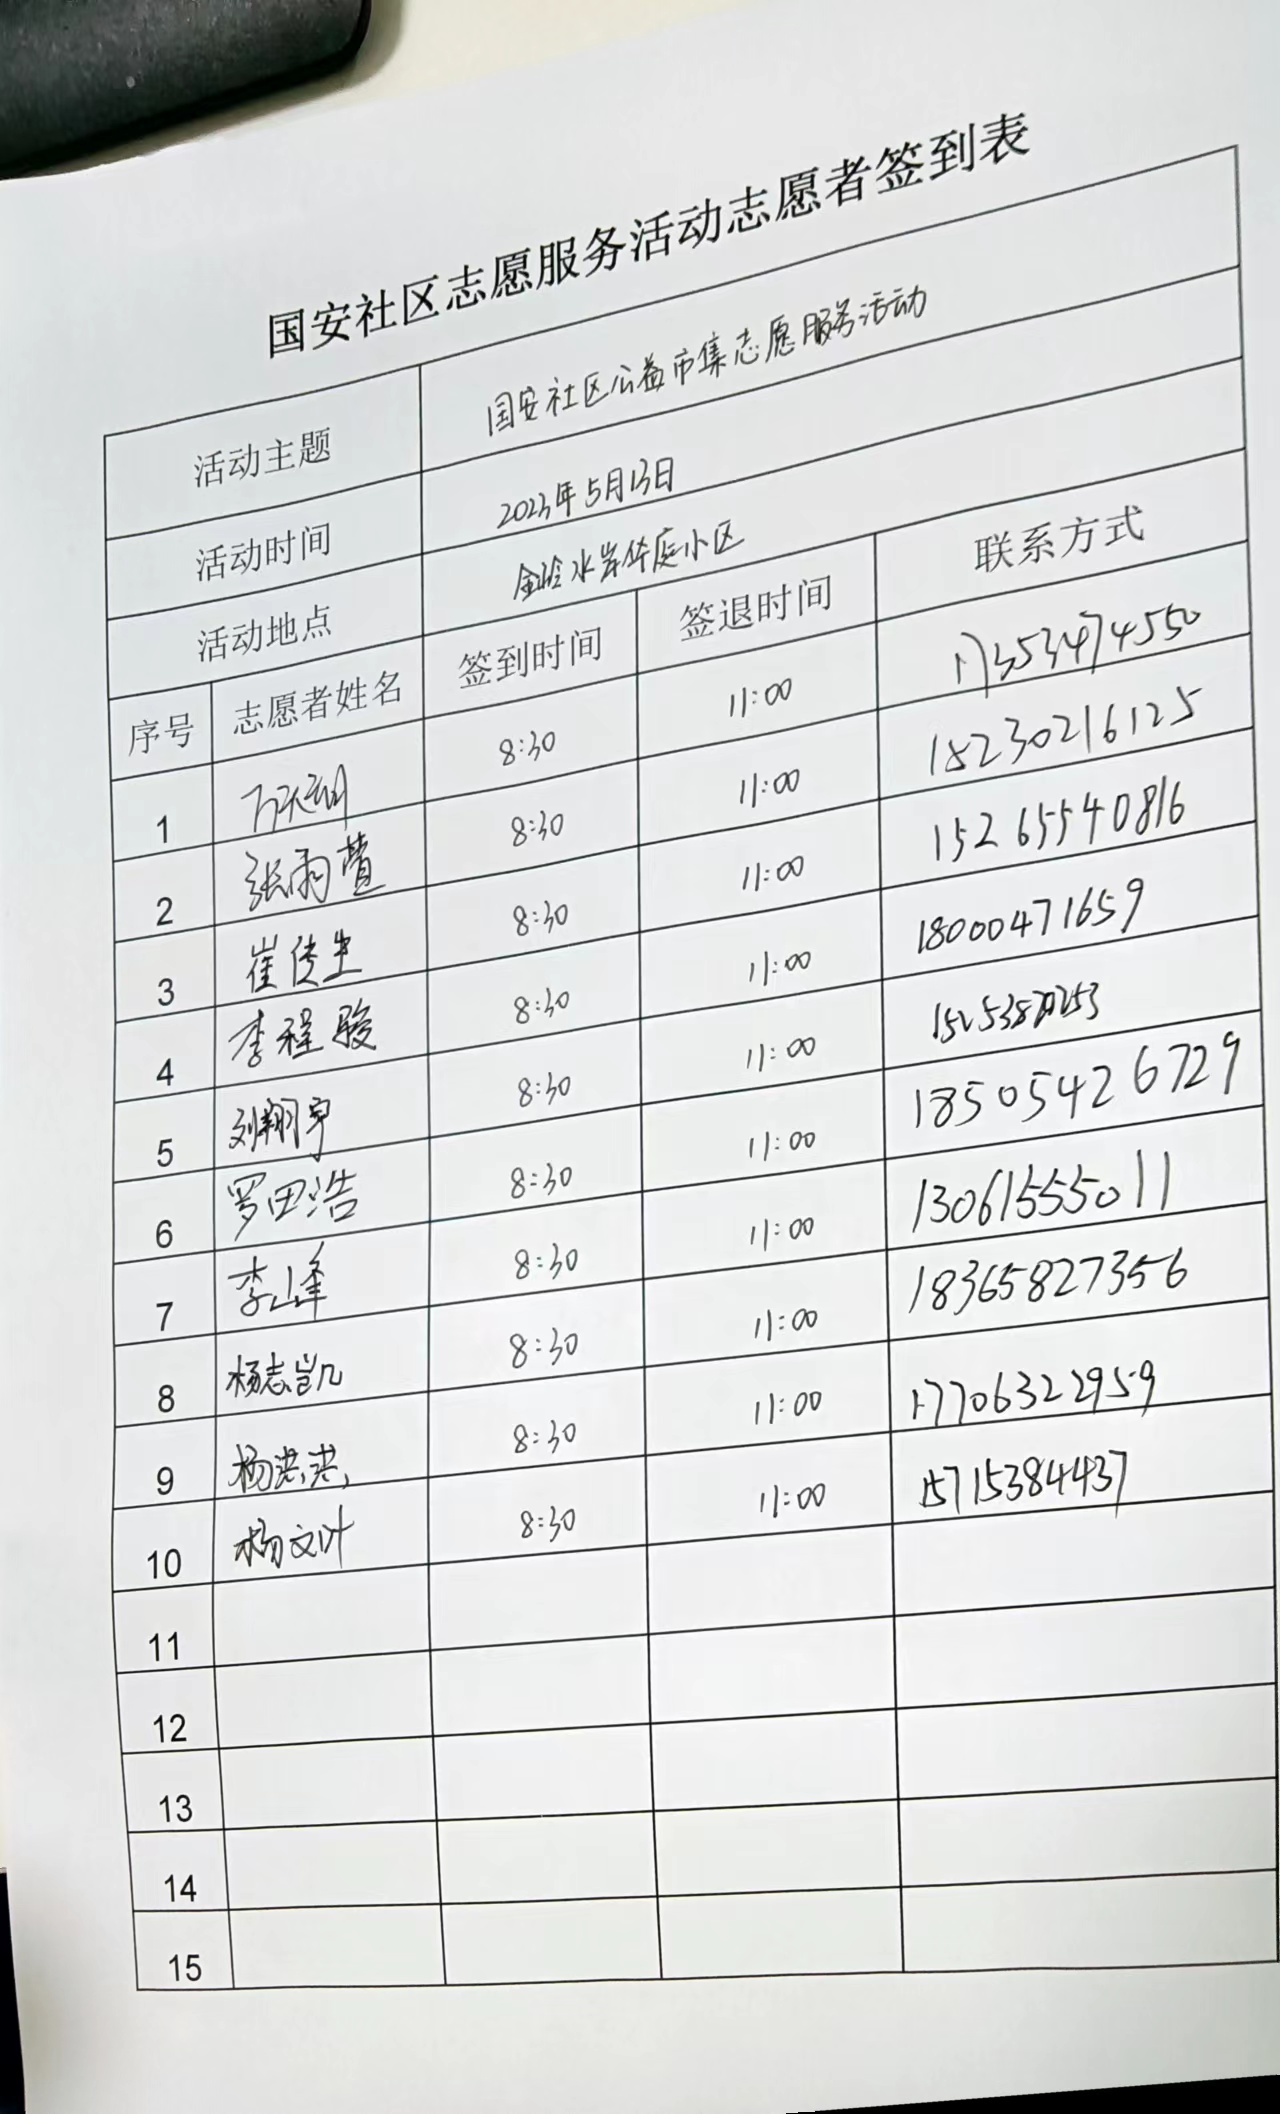 国安社区志愿服务活动志愿者签到表
活动主题 国安社区公益市集志愿服务活动
活动时间 2023年5月13日
活动地点 金岭水岸华庭小区
序号 志愿者姓名 签到时间 签退时间 联系方式
1 8:30 11:00 17353474550
2 张雨萱 8:30 11:00 18230216125
3 崔传生 8:30 11:00 15265540816
4 李程骏 8:30 11:00 18000471659
5 刘翔宇 8:30 11:00
6 罗田浩 8:30 11:00 18505426729
7 李峰 8:30 11:00 13061555011
8 杨志凯 8:30 11:00 18365827356
9 杨洪洪 8:30 11:00 17706322959
10 杨文叶 8:30 11:00 15715384437
11
12
13
14
15